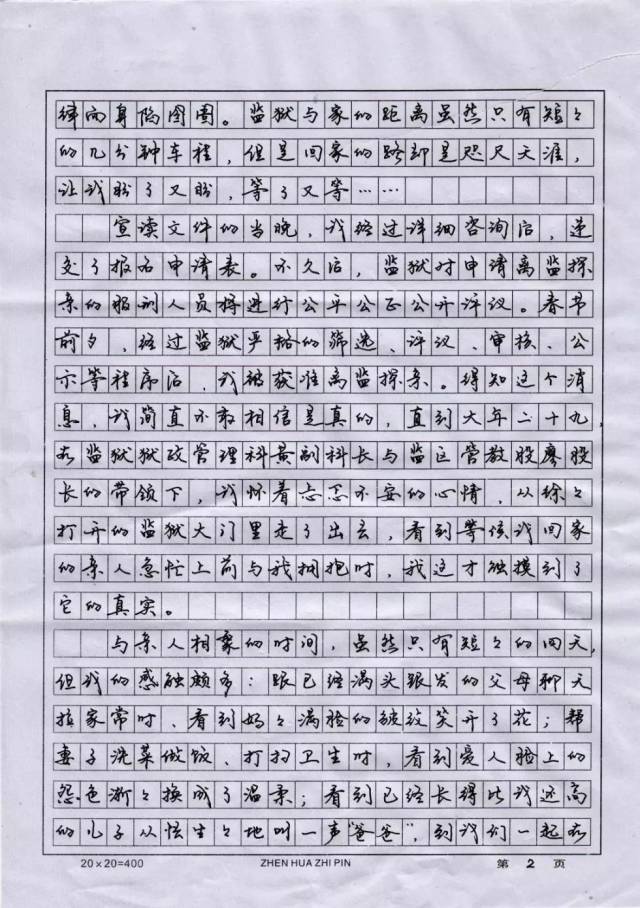 律向身陷囹圄。监狱与家的距离虽然只有短々
的几分钟车程，但是回家的路却是咫尺天涯，
让我盼了又盼，等了又等……
宣读文件的当晚，我经过详细咨询后，递
交了报名申请表。不久后，监狱对申请离监探
亲的服刑人员将进行公平公正公开评议。春节
前夕，经过监狱严格的筛选、评议、审核、公
示等程序后，我被获准离监探亲。得知这个消
息，我简直不敢相信是真的，直到大年二十九，
在监狱狱政管理科黄副科长与监区管教股廖股
长的带领下，我怀着忐忑不安的心情，从徐々
打开的监狱大门里走了出去，看到等候我回家
的亲人急忙上前与我拥抱时，我这才触摸到了
它的真实。
与亲人相聚的时间，虽然只有短々的四天，
但我的感触颇多：跟已经满头银发的父母聊天
拉家常时、看到妈々满脸的皱纹笑开了花；帮
妻子洗菜做饭、打扫卫生时，看到爱人脸上的
怨色渐々换成了温柔；看到已经长得比我还高
的儿子从怯生々地叫一声“爸爸”，到我们一起在
20×20=400 ZHEN HUA ZHI PIN 第 2 页